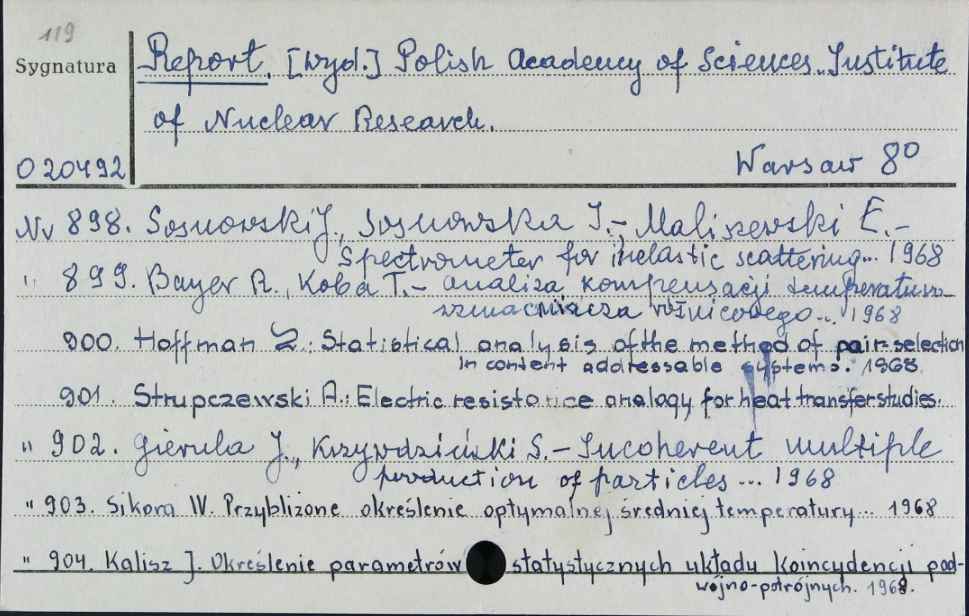 119
Sygnatura
Report. [Wyd.] Polish Academy of Sciences. Institute
of Nuclear Research.
O 20492
Warsaw 8°
Nr 898. Sosnowski J., Sosnowska I.- Maliszewski E.-
Spectrometer for inelastic scattering... 1968
" 899. Bayer R., Koba T.- Analiza kompensacji temperaturo-
wzmacniacza różnicowego... 1968
900. Hoffman Z.: Statistical analysis of the method of pair-selection
in content addressable systems. 1968.
901. Strupczewski A.: Electric resistance analogy for heat transfer studies.
" 902. Gierula J., Krzywdziński S.- Incoherent multiple
production of particles ... 1968
" 903. Sikora W. Przybliżone określenie optymalnej średniej temperatury... 1968
" 904. Kalisz J. Określenie parametrów statystycznych układu koincydencji pod-
wójno-potrójnych. 1968.